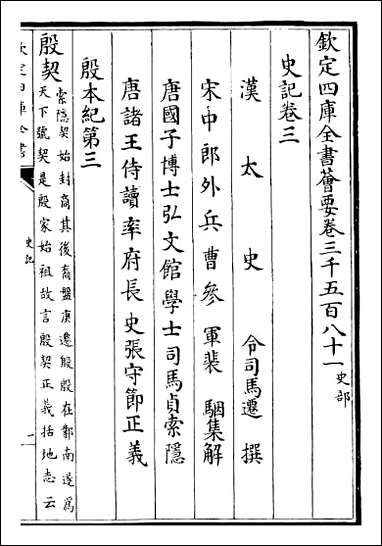 欽定四庫全書薈要卷三千五百八十一史部
史記卷三
漢太史令司馬遷撰
宋中郎外兵曹參軍裴駰集解
唐國子博士弘文館學士司馬貞索隱
唐諸王侍讀率府長史張守節正義
殷本紀第三
殷契索隱契始封商其後裔盤庚遷殷殷在鄴南遂爲
天下號契是殷家始祖故言殷契正義括地志云
欽定四庫全書
史記
一